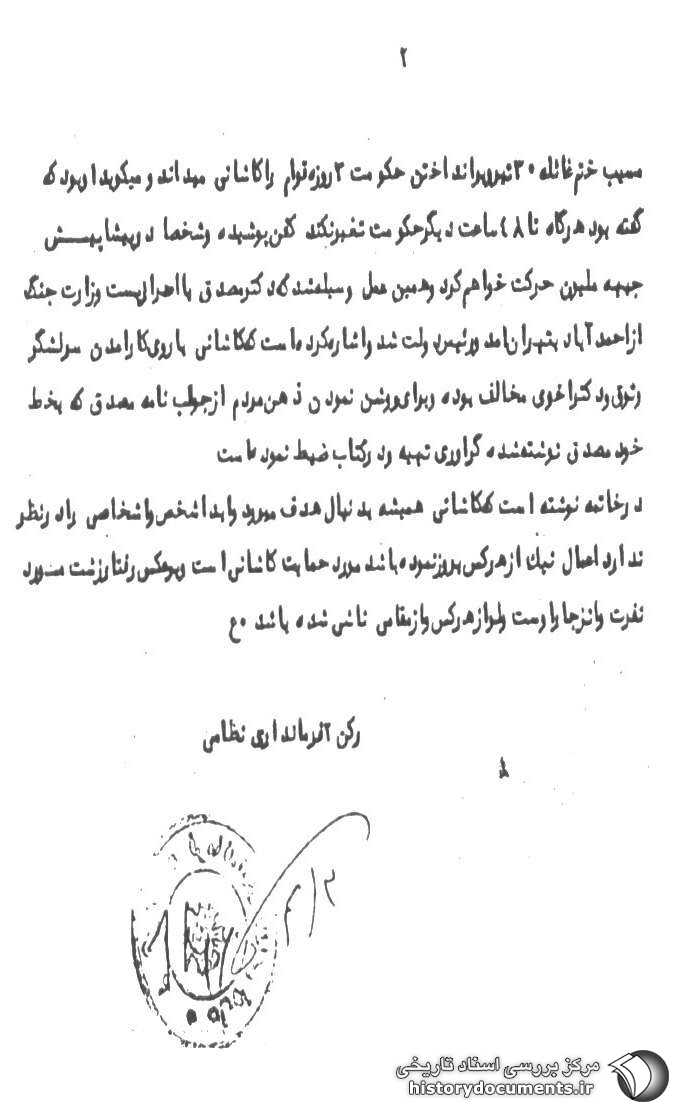 ۲
مسبب ختم غائله ۳۰ تیر و برانداختن حکومت ۳ روزه قوام را کاشانی میداند و میگوید او بود که
گفته بود هرگاه تا ۴۸ ساعت دیگر حکومت تغییر نکند کفن پوشیده و شخصا در پیشاپیش
جبهه ملیون حرکت خواهم کرد و همین عمل وسیله شد که دکتر مصدق با احراز پست وزارت جنگ
از احمد آباد بتهران امد و رئیس دولت شد و اشاره کرده است که کاشانی با روی کار امدن سرلشگر
وثوق و دکتر اخوی مخالف بوده و برای روشن نمودن ذهن مردم از جواب نامه مصدق که بخط
خود مصدق نوشته شده گراوری تهیه و در کتاب ضبط نموده است
در خاتمه نوشته است که کاشانی همیشه بدنبال هدف میرود و ابدا شخص و اشخاصی را در نظر
ندارد اعمال نیک از هر کس بروز نموده باشد مورد حمایت کاشانی است و برعکس رفتار زشت مورد
نفرت و انزجار اوست ولو از هر کس و از مقامی ناشی شده باشد ۰ع
رکن ۲ فرمانداری نظامی
مرکز بررسی اسناد تاریخی
historydocuments.ir